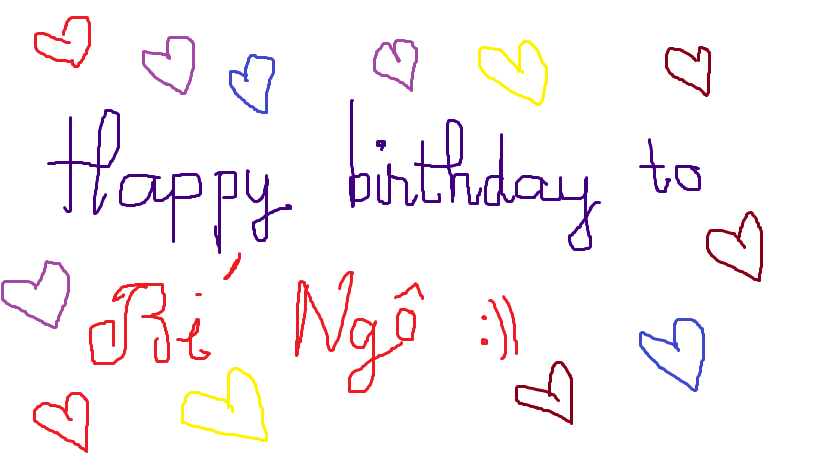 Happy birthday to
Bí Ngô :))